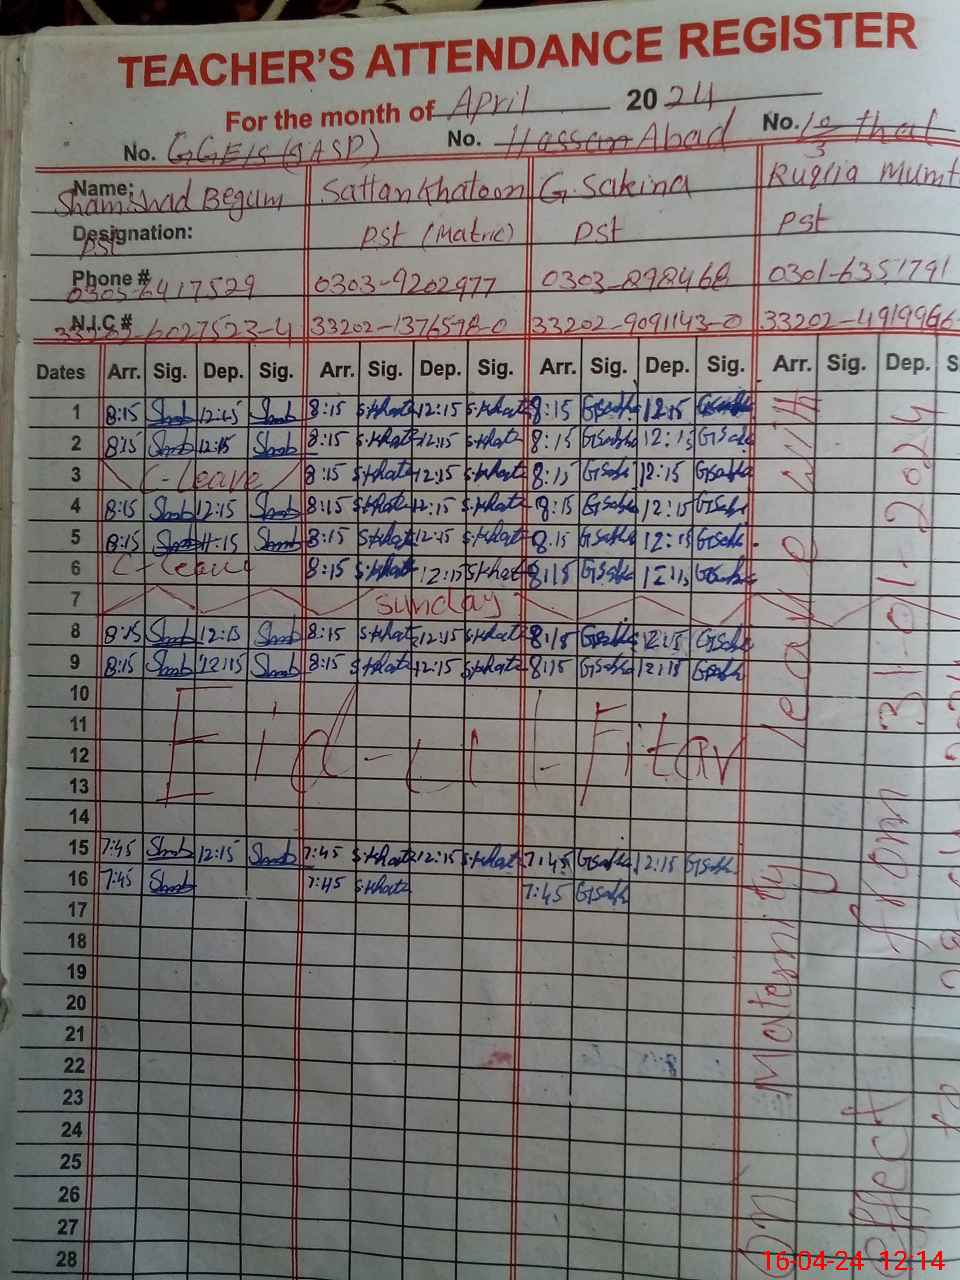 TEACHER'S ATTENDANCE REGISTER
For the month of April 2024
No. GGEIS (SASP) No. Hassan Abad No. 10/3 thal
Name: Shamshad Begum Sattan Khatoon G. Sakina Ruqiia Mumt
Designation: PST PST (Matric) PST PST
Phone # 0303-6417529 0303-9202977 0303-898468 0301-6351791
N.I.C # 33202-6027523-4 33202-1376578-0 33202-9091143-0 33202-4919966-
Dates Arr. Sig. Dep. Sig. Arr. Sig. Dep. Sig. Arr. Sig. Dep. Sig. Arr. Sig. Dep. S
1 8:15 12:15 8:15 S.Khat 12:15 S.Khat 8:15 12:15
2 8:15 12:15 8:15 S.Khat 12:15 S.Khat 8:15 12:15
3 C-leave 8:15 S.Khat 12:15 S.Khat 8:15 12:15
4 8:15 12:15 8:15 S.Khat 12:15 S.Khat 8:15 12:15
5 8:15 11:15 8:15 S.Khat 12:15 S.Khat 8:15 12:15
6 C-leave 8:15 S.Khat 12:15 S.Khat 8:15 12:15
7 Sunday
8 8:15 12:15 8:15 S.Khat 12:15 S.Khat 8:15 12:15
9 8:15 12:15 8:15 S.Khat 12:15 S.Khat 8:15 12:15
10
11
12 Eid-ul-Fitar
13
14
15 7:45 12:15 7:45 S.Khat 12:15 S.Khat 7:45 12:15
16 7:45 7:45 S.Khat 7:45
17
18
19
20
21
22
23
24
25
26
27
28
On Maternity leave with
effect from 31-01-2024
to
16-04-24 12:14